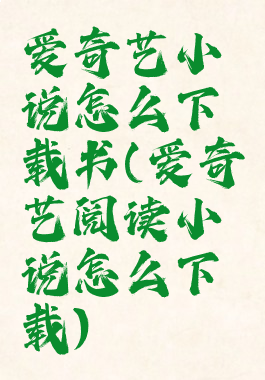 爱奇艺小
说怎么下
载书(爱奇
艺阅读小
说怎么下
载)